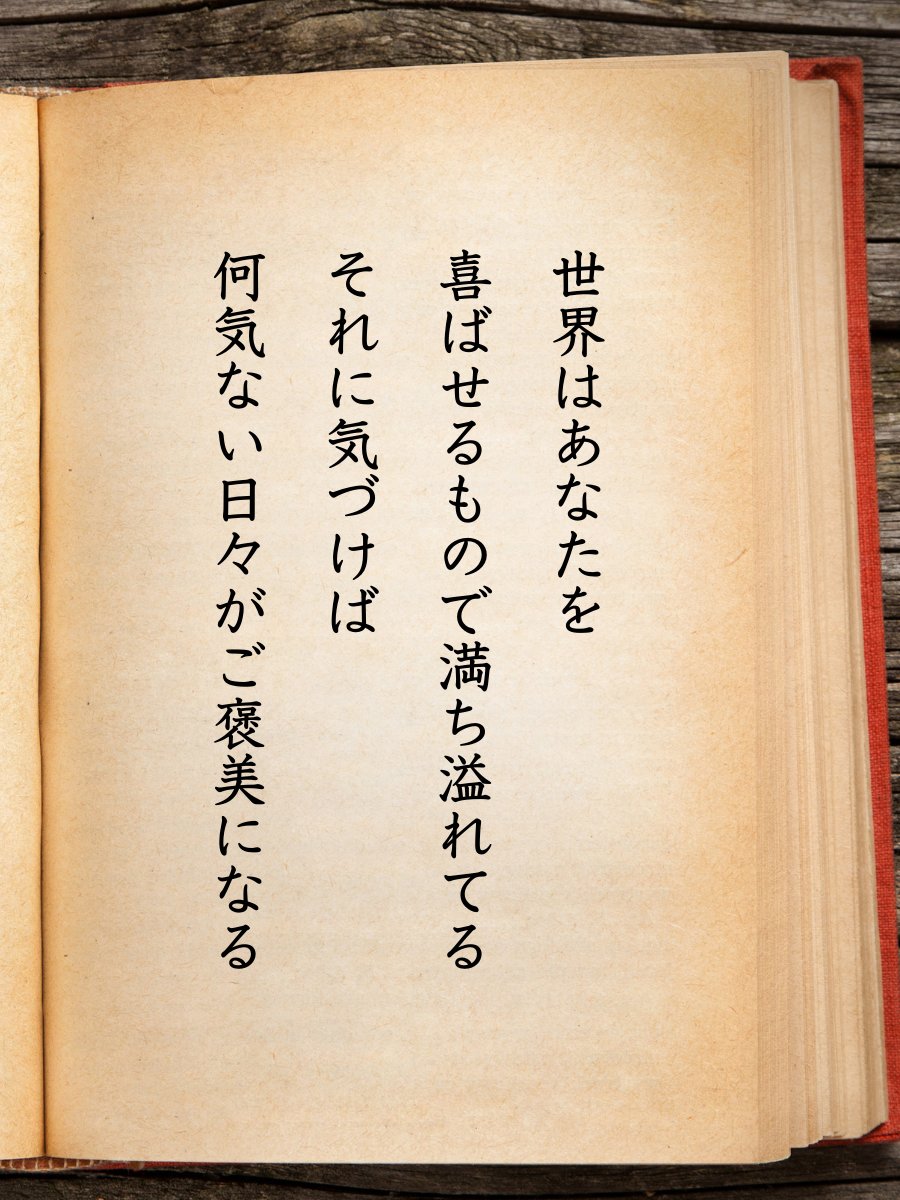 世界はあなたを
喜ばせるもので満ち溢れてる
それに気づけば
何気ない日々がご褒美になる